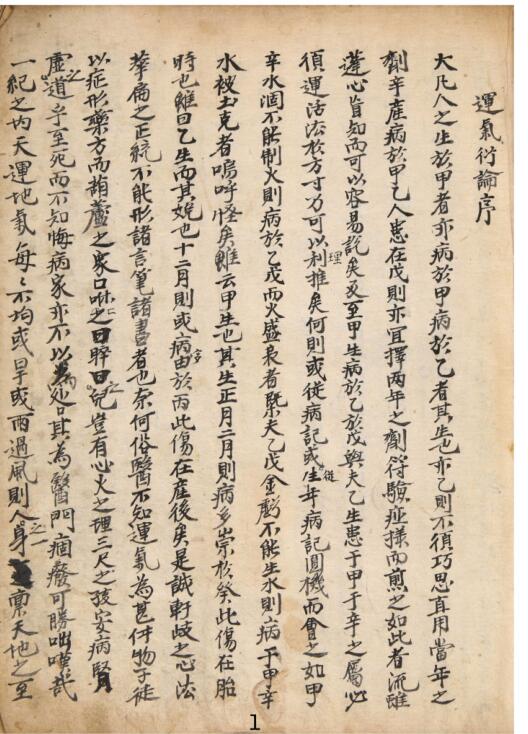 運氣衍論序
大凡人之生於甲者亦病於甲病於乙者其生也亦乙則不須巧思直用當年之
劑辛產病於甲乙人患在戊則亦宜擇兩年之劑符驗症據而煎之如此者流雖
蓬心皆知而可以容易說矣及至甲生病於乙於戊與夫乙生患于甲于辛之屬必
須運活法於方寸方可以利推矣何則或從病記或從生年病記圓機而會之如甲
辛水涸不能制火則病於乙戊而火盛衰者槩夫乙戊金虧不能生水則病于甲辛
水被土克者嗚呼怪矣雖云甲生也其生正月二月則病多祟於癸此傷在胎
時也雖曰乙生而其娩也十二月則或病由於丙此傷在產後矣是誠軒歧之心法
華扁之正統不能形諸言筆諸書者也奈何俗醫不知運氣為甚件物子徒
以症形藥方而葫蘆之家口咻之曰脺曰兒豈有心火之理三尺之孩安病腎
虛之道乎至死而不知悔病家亦不以為處其為醫門痼癈可勝咄嗟哉
一紀之內天運地氣每々不均或旱或雨過風則人之一身稟天地之至
1